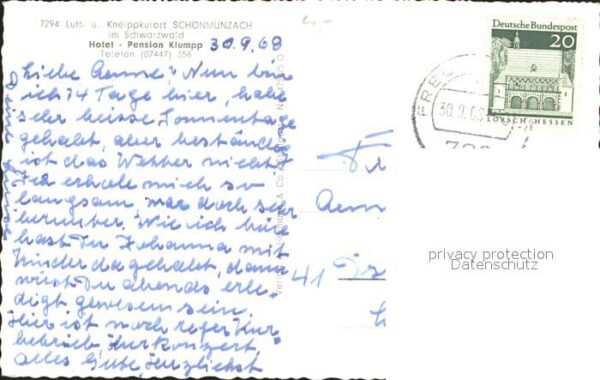 7294 Luft- u. Kneippkurort SCHÖNMÜNZACH
im Schwarzwald
Hotel - Pension Klumpp
Telefon (07447) 356
30.9.68
Liebe Aenne! Nun bin
ich 14 Tage hier, habe
sehr heisse Sonnentage
gehabt, aber beständig
ist das Wetter nicht.
Ich erhole mich so
langsam, war doch sehr
herunter. Wie ich höre
hast Du Johanna mit
Kinder da gehabt, dann
wirst Du abends erle-
digt gewesen sein.
Hier ist noch reger Kur-
betrieb, Kurkonzert
alles Gute, herzlichst
Deutsche Bundespost
20
LORSCH/HESSEN
FREU
30.9.68
Aenn
41
privacy protection
Datenschutz